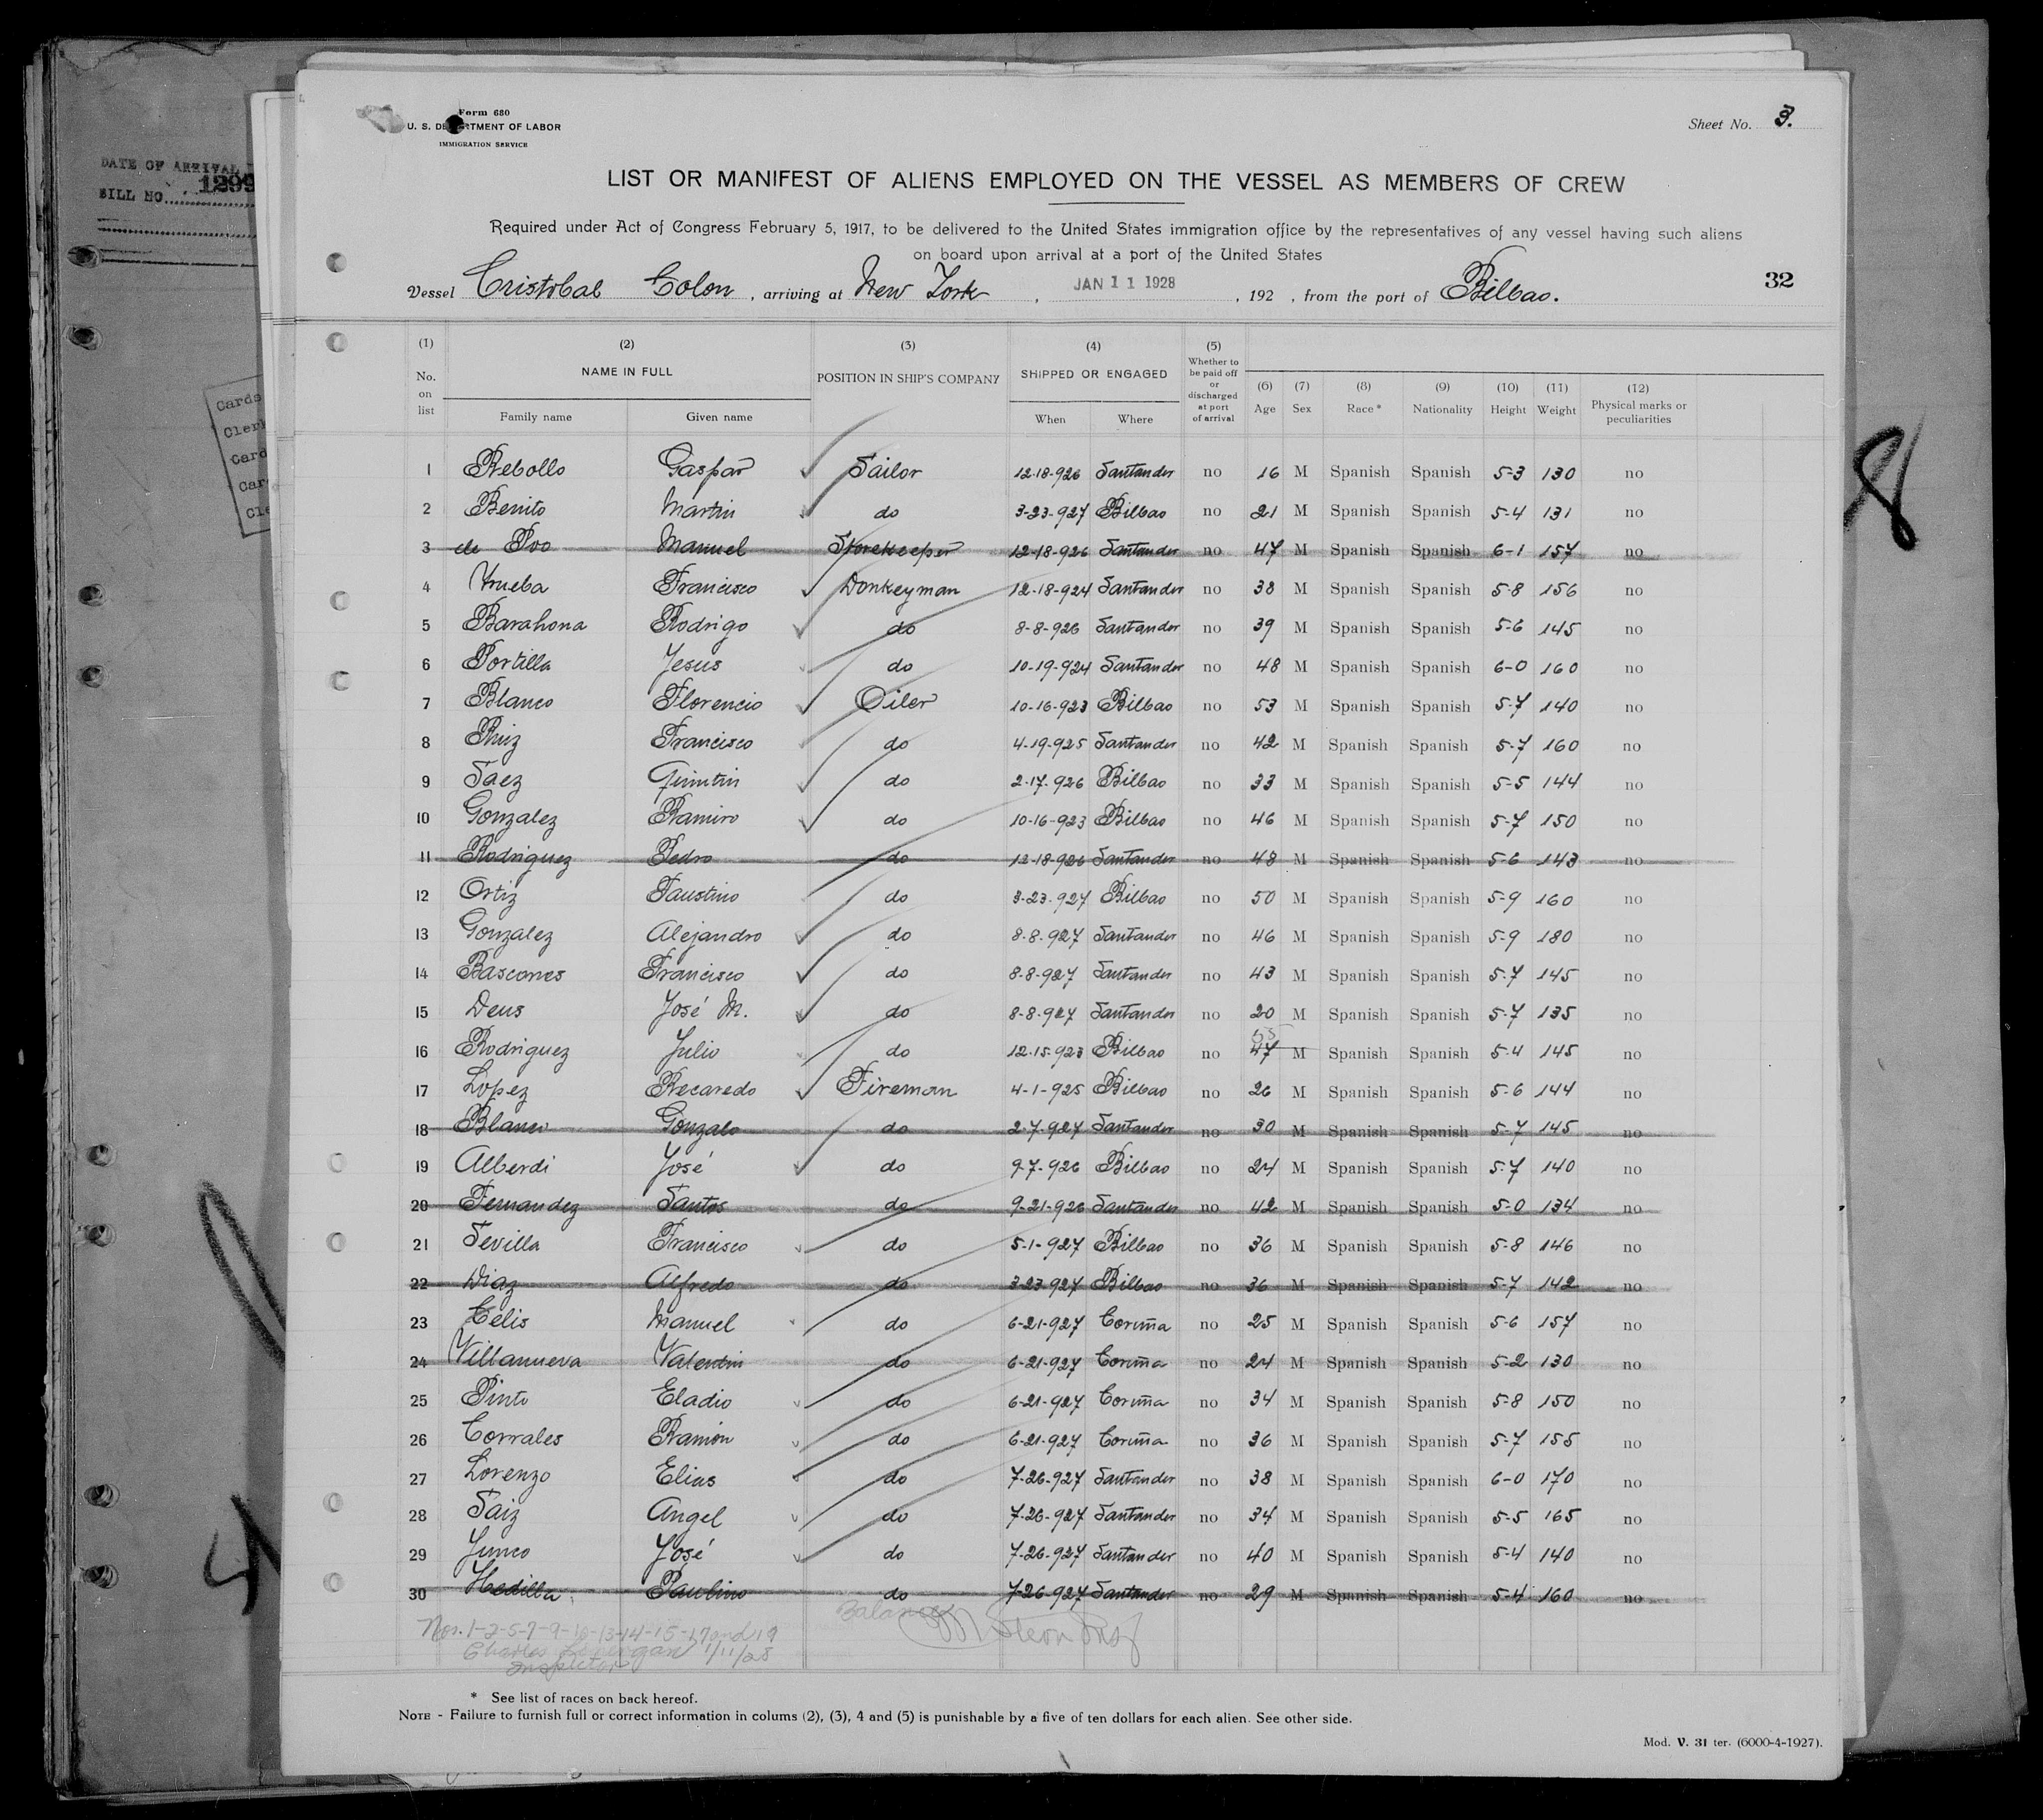 Form 680
U. S. DEPARTMENT OF LABOR
IMMIGRATION SERVICE
Sheet No. 3.
DATE OF ARRIVAL
BILL NO. 1299
LIST OR MANIFEST OF ALIENS EMPLOYED ON THE VESSEL AS MEMBERS OF CREW
Required under Act of Congress February 5, 1917, to be delivered to the United States immigration office by the representatives of any vessel having such aliens
on board upon arrival at a port of the United States
Vessel Cristobal Colon, arriving at New York, JAN 11 1928, 192 , from the port of Bilbao.
32
(1) No. on list (2) NAME IN FULL Family name Given name (3) POSITION IN SHIP'S COMPANY (4) SHIPPED OR ENGAGED When Where (5) Whether to be paid off or discharged at port of arrival (6) Age (7) Sex (8) Race* (9) Nationality (10) Height (11) Weight (12) Physical marks or peculiarities
1 Rebollo Gaspar Sailor 12-18-926 Santander no 16 M Spanish Spanish 5-3 130 no
2 Benito Martin do 3-23-927 Bilbao no 21 M Spanish Spanish 5-4 131 no
3 de Poo Manuel Storekeeper 12-18-926 Santander no 47 M Spanish Spanish 6-1 157 no
4 Trueba Francisco Donkeyman 12-18-924 Santander no 38 M Spanish Spanish 5-8 156 no
5 Barahona Rodrigo do 8-8-926 Santander no 39 M Spanish Spanish 5-6 145 no
6 Portilla Jesus do 10-19-924 Santander no 48 M Spanish Spanish 6-0 160 no
7 Blanco Florencio Oiler 10-16-923 Bilbao no 53 M Spanish Spanish 5-7 140 no
8 Ruiz Francisco do 4-19-925 Santander no 42 M Spanish Spanish 5-7 160 no
9 Saez Quintin do 2-17-926 Bilbao no 33 M Spanish Spanish 5-5 144 no
10 Gonzalez Ramiro do 10-16-923 Bilbao no 46 M Spanish Spanish 5-7 150 no
11 Rodriguez Pedro do 12-18-926 Santander no 48 M Spanish Spanish 5-6 143 no
12 Ortiz Faustino do 3-23-927 Bilbao no 50 M Spanish Spanish 5-9 160 no
13 Gonzalez Alejandro do 8-8-927 Santander no 46 M Spanish Spanish 5-9 180 no
14 Bascones Francisco do 8-8-927 Santander no 43 M Spanish Spanish 5-7 145 no
15 Deus José M. do 8-8-927 Santander no 20 M Spanish Spanish 5-7 135 no
16 Rodriguez Julio do 12-15-923 Bilbao no 55 47 M Spanish Spanish 5-4 145 no
17 Lopez Recaredo Fireman 4-1-925 Bilbao no 26 M Spanish Spanish 5-6 144 no
18 Blanco Gonzalo do 2-7-927 Santander no 30 M Spanish Spanish 5-7 145 no
19 Alberdi José do 9-7-926 Bilbao no 24 M Spanish Spanish 5-7 140 no
20 Fernandez Santos do 9-21-926 Santander no 42 M Spanish Spanish 5-0 134 no
21 Sevilla Francisco do 5-1-927 Bilbao no 36 M Spanish Spanish 5-8 146 no
22 Diaz Alfredo do 3-23-927 Bilbao no 36 M Spanish Spanish 5-7 142 no
23 Celis Manuel do 6-21-927 Coruña no 25 M Spanish Spanish 5-6 157 no
24 Villanueva Valentin do 6-21-927 Coruña no 24 M Spanish Spanish 5-2 130 no
25 Pinto Eladio do 6-21-927 Coruña no 34 M Spanish Spanish 5-8 150 no
26 Corrales Ramon do 6-21-927 Coruña no 36 M Spanish Spanish 5-7 155 no
27 Lorenzo Elias do 7-26-927 Santander no 38 M Spanish Spanish 6-0 170 no
28 Saiz Angel do 7-26-927 Santander no 34 M Spanish Spanish 5-5 165 no
29 Junco José do 7-26-927 Santander no 40 M Spanish Spanish 5-4 140 no
30 Hedilla Paulino do 7-26-927 Santander no 29 M Spanish Spanish 5-4 160 no
Nos. 1-2-5-7-9-10-13-14-15-17 and 19
Charles 1/11/28
Inspector
Balance
* See list of races on back hereof.
NOTE - Failure to furnish full or correct information in colums (2), (3), 4 and (5) is punishable by a five of ten dollars for each alien. See other side.
Mod. V. 31 ter. (6000-4-1927).